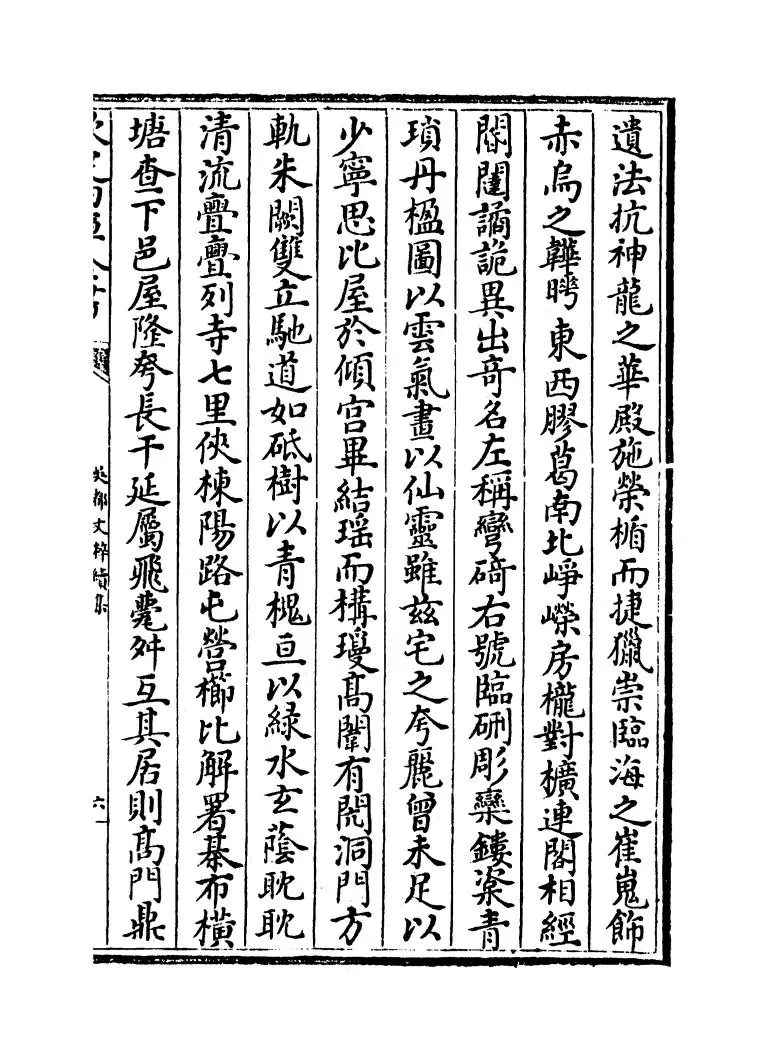 遺法抗神龍之華殿施榮楯而捷獵崇臨海之崔嵬飾
赤烏之韡曄東西膠葛南北崢嶸房櫳對櫎連閣相經
閽闥譎詭異出竒名左稱彎碕右號臨硎彫欒鏤楶青
瑣丹楹圖以雲氣畫以仙靈雖兹宅之夸麗曾未足以
少寧思比屋於傾宫畢結瑶而構瓊髙闈有閌洞門方
軌朱闕雙立馳道如砥樹以青槐亘以緑水玄蔭耽耽
清流亹亹列寺七里俠棟陽路屯營櫛比解署棊布橫
塘查下邑屋隆夸長干延屬飛甍舛互其居則髙門鼎
吳都文粹續集
六